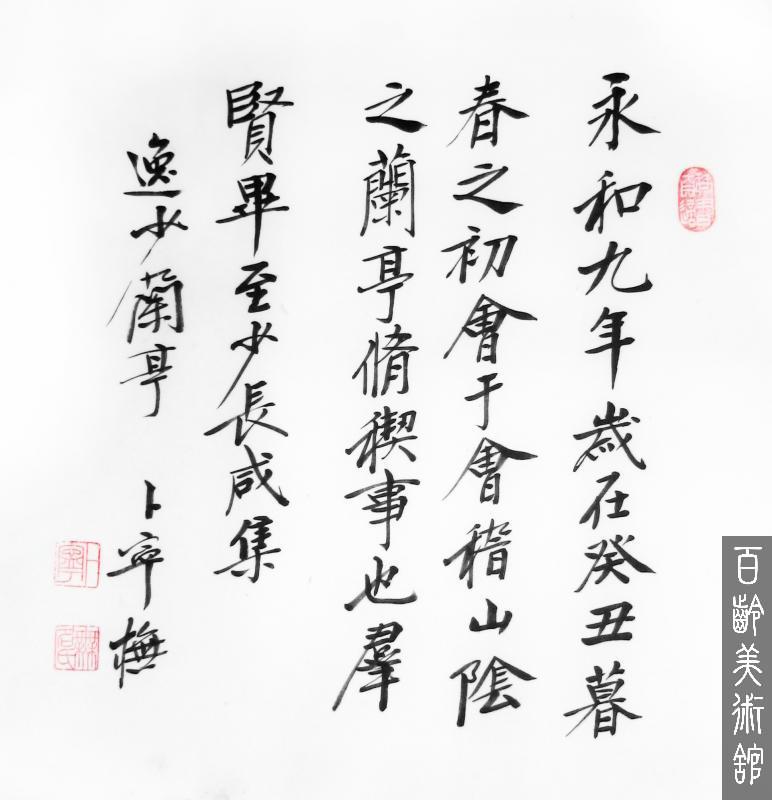 永和九年歲在癸丑暮
春之初會于會稽山陰
之蘭亭脩稧事也羣
賢畢至少長咸集
逸少蘭亭 卜寧橅
百齡美術館